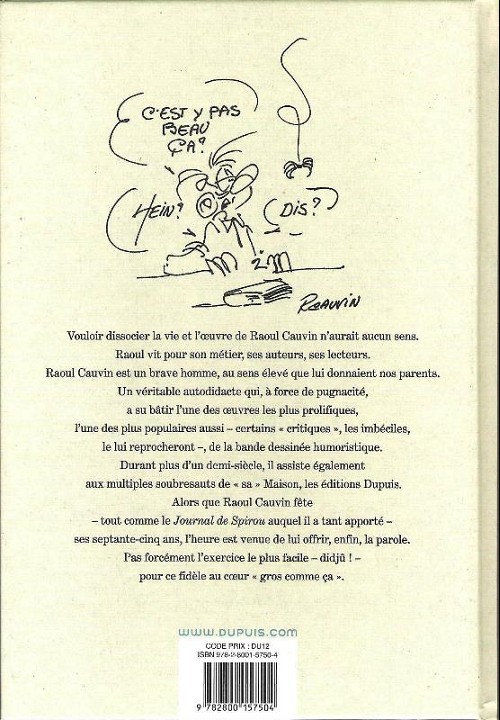 C'EST Y PAS
BEAU
ÇA?
HEIN?
DIS?
RCAUVIN
Vouloir dissocier la vie et l'œuvre de Raoul Cauvin n'aurait aucun sens.
Raoul vit pour son métier, ses auteurs, ses lecteurs.
Raoul Cauvin est un brave homme, au sens élevé que lui donnaient nos parents.
Un véritable autodidacte qui, à force de pugnacité,
a su bâtir l'une des œuvres les plus prolifiques,
l'une des plus populaires aussi – certains « critiques », les imbéciles,
le lui reprocheront –, de la bande dessinée humoristique.
Durant plus d'un demi-siècle, il assiste également
aux multiples soubresauts de « sa » Maison, les éditions Dupuis.
Alors que Raoul Cauvin fête
– tout comme le Journal de Spirou auquel il a tant apporté –
ses septante-cinq ans, l'heure est venue de lui offrir, enfin, la parole.
Pas forcément l'exercice le plus facile – didjû ! –
pour ce fidèle au cœur « gros comme ça ».
WWW.DUPUIS.COM
CODE PRIX : DU12
ISBN 978-2-8001-5750-4
9 782800 157504